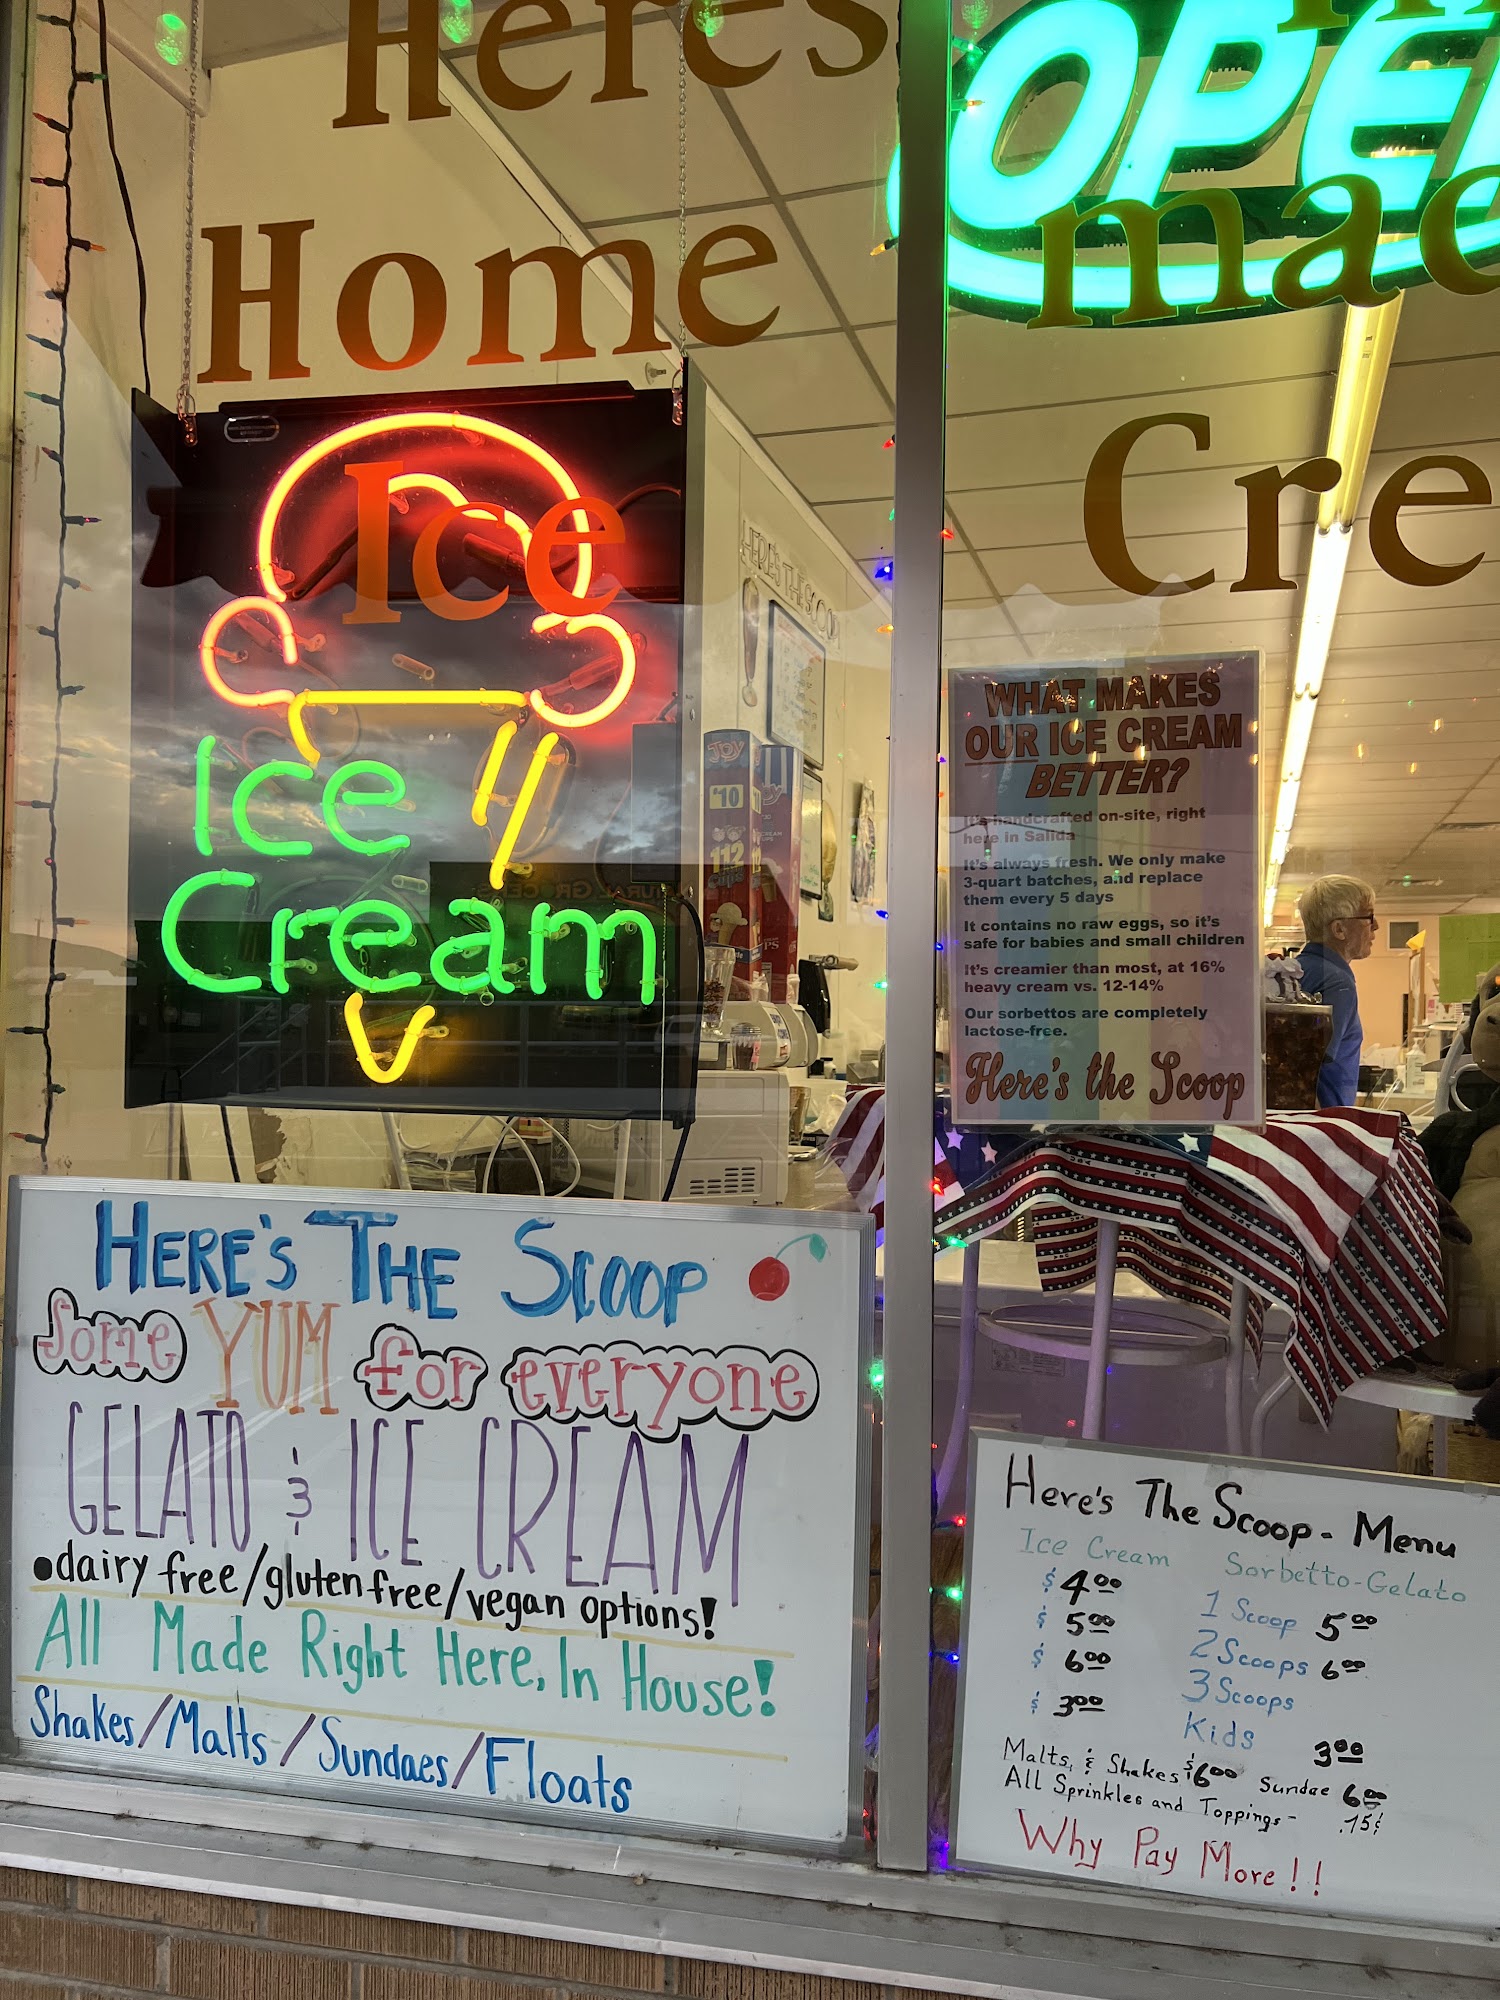 Heres
Home
Ice
Ice
Cream
OPE
mad
Cre
HERE'S THE SCOOP
JOY
$10
112
WHAT MAKES
OUR ICE CREAM
BETTER?
It's handcrafted on-site, right
here in Salida
It's always fresh. We only make
3-quart batches, and replace
them every 5 days
It contains no raw eggs, so it's
safe for babies and small children
It's creamier than most, at 16%
heavy cream vs. 12-14%
Our sorbettos are completely
lactose-free.
Here's the Scoop
HERE'S THE SCOOP
Some YUM for everyone
GELATO & ICE CREAM
•dairy free/gluten free/vegan options!
All Made Right Here, In House!
Shakes/Malts/Sundaes/Floats
Here's The Scoop - Menu
Ice Cream Sorbetto-Gelato
$4.00 1 Scoop 5.00
$5.00 2 Scoops 6.00
$6.00 3 Scoops
$3.00 Kids 3.00
Malts, & Shakes $6.00 Sundae 6.00
All Sprinkles and Toppings - .15¢
Why Pay More!!